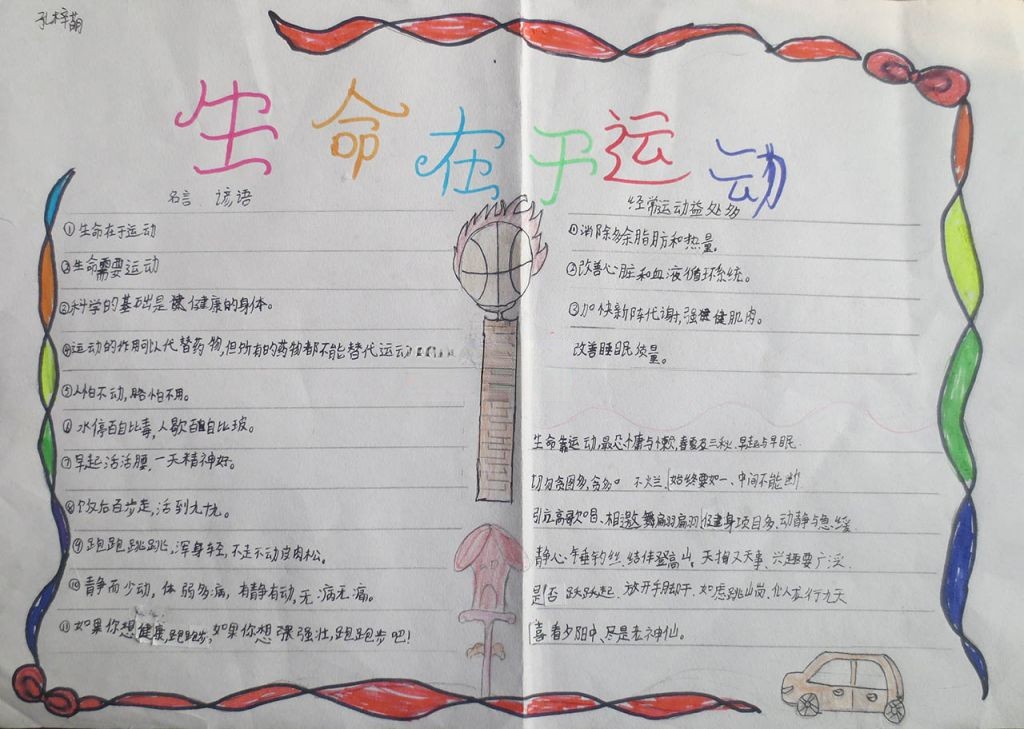 孔梓萌
生命在于运动
名言 谚语
①生命在于运动
②生命需要运动
③科学的基础是健康的身体。
④运动的作用可以代替药物,但所有的药物都不能替代运动
⑤人怕不动,脑怕不用。
⑥水停百日比毒,人歇百日自比玻。
⑦早起活活腰,一天精神好。
⑧饭后百步走,活到九十九。
⑨跑跑跳跳,浑身轻,不走不动皮肉松。
⑩静而少动,体弱多病,有静有动,无病无痛。
⑪如果你想健康,跑跑步,如果你想强强壮,跑跑步吧!
经常运动益处多
①消除多余脂肪和热量。
②改善心脏和血液循环系统。
③加快新陈代谢,强健肌肉。
改善睡眠质量。
生命靠运动,最忌慵与懒,春夏及三秋、早起与早眠.
切勿贪图多,贪多 不烂、始终要如一、中间不能断
引吭高歌唱、相邀舞扇羽扇羽 健身项目多、动静与急缓
静心 垂钓丝、结伴登高山。天相又天事、兴趣要广泛
是否 跃跃起、放开手脚干、如虎跳山岗、似 行九天
喜看夕阳中、尽是老神仙。